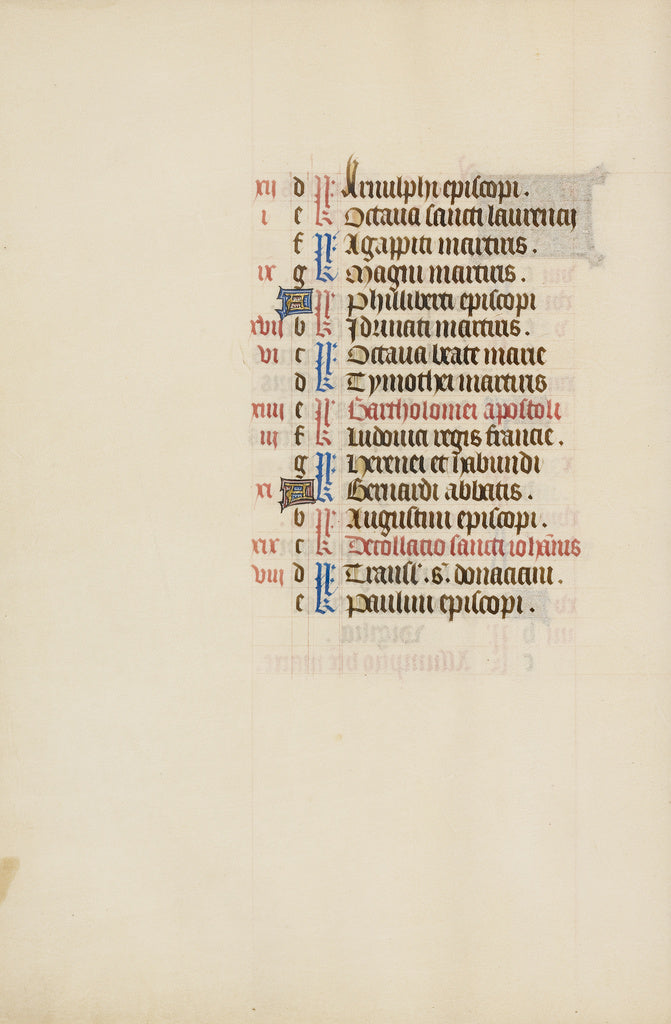 xii d N: Arnulphi episcopi.
i e k Octaua sancti laurencij
f N: Agappiti martiris.
ix g k Magni martiris.
A N: Philiberti episcopi
xvii b k martiris.
vi c N: Octaua beate marie
d k Tymothei martiris
xiiii e N: Bartholomei apostoli
iii f k Ludouici regis francie.
g N: Herenei et habundi
xi A k Bernardi abbatis.
b N: Augustini episcopi.
xix c k Decollacio sancti iohannis
viii d N: Transl'. s. donaciani.
e k Paulini episcopi.